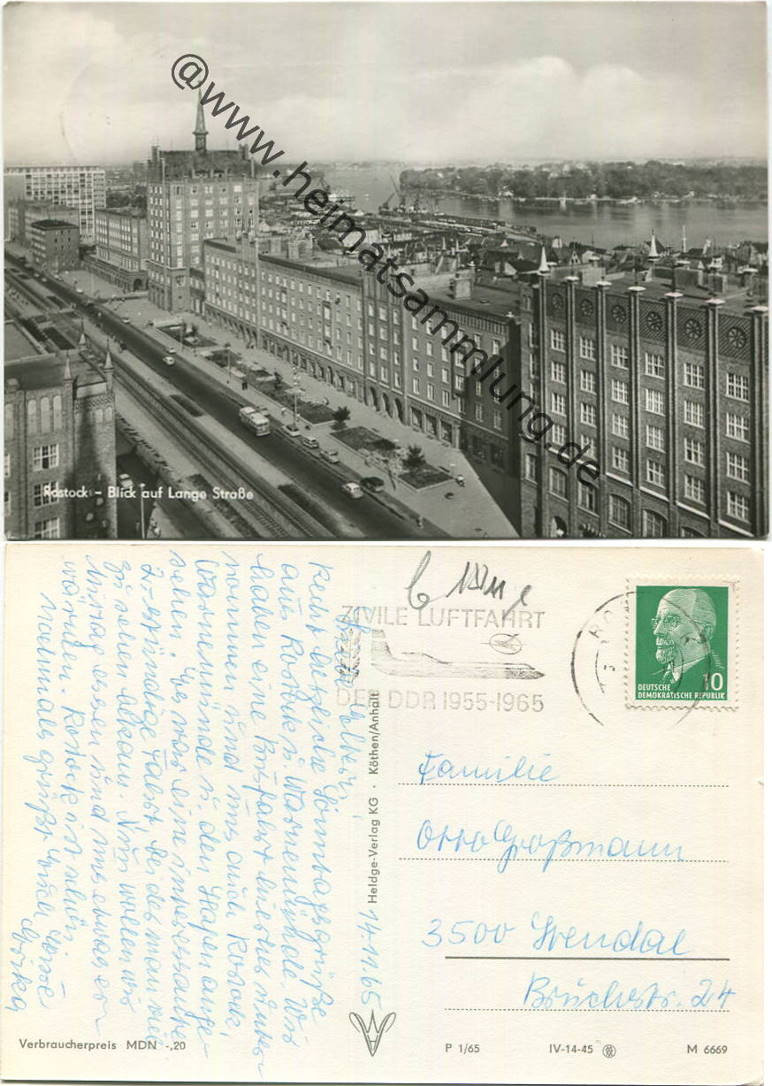 @www.heimatsammlung.de
Rostock - Blick auf Lange Straße
ZIVILE LUFTFAHRT
DER DDR 1955-1965
10
DEUTSCHE
DEMOKRATISCHE REPUBLIK
Familie
Otto Großmann
3500 Stendal
Bruchstr. 24
Heldge-Verlag KG · Köthen/Anhalt
14.11.65
Recht herzliche Sonntagsgrüße
aus Rostock u. Warnemünde. Wir
haben eine Busfahrt hierhin unter-
nommen und uns auch Rostock,
Warnemünde u. den Hafen ange-
sehen. Es war eine interessante
2-stündige Fahrt, bei der man viel
zu sehen bekam. Nun wollen wir
Mittag essen und uns etwas er-
wärmen. Rostock ist schön.
Nochmals grüßt
Verbraucherpreis MDN -,20
P 1/65
IV-14-45
M 6669